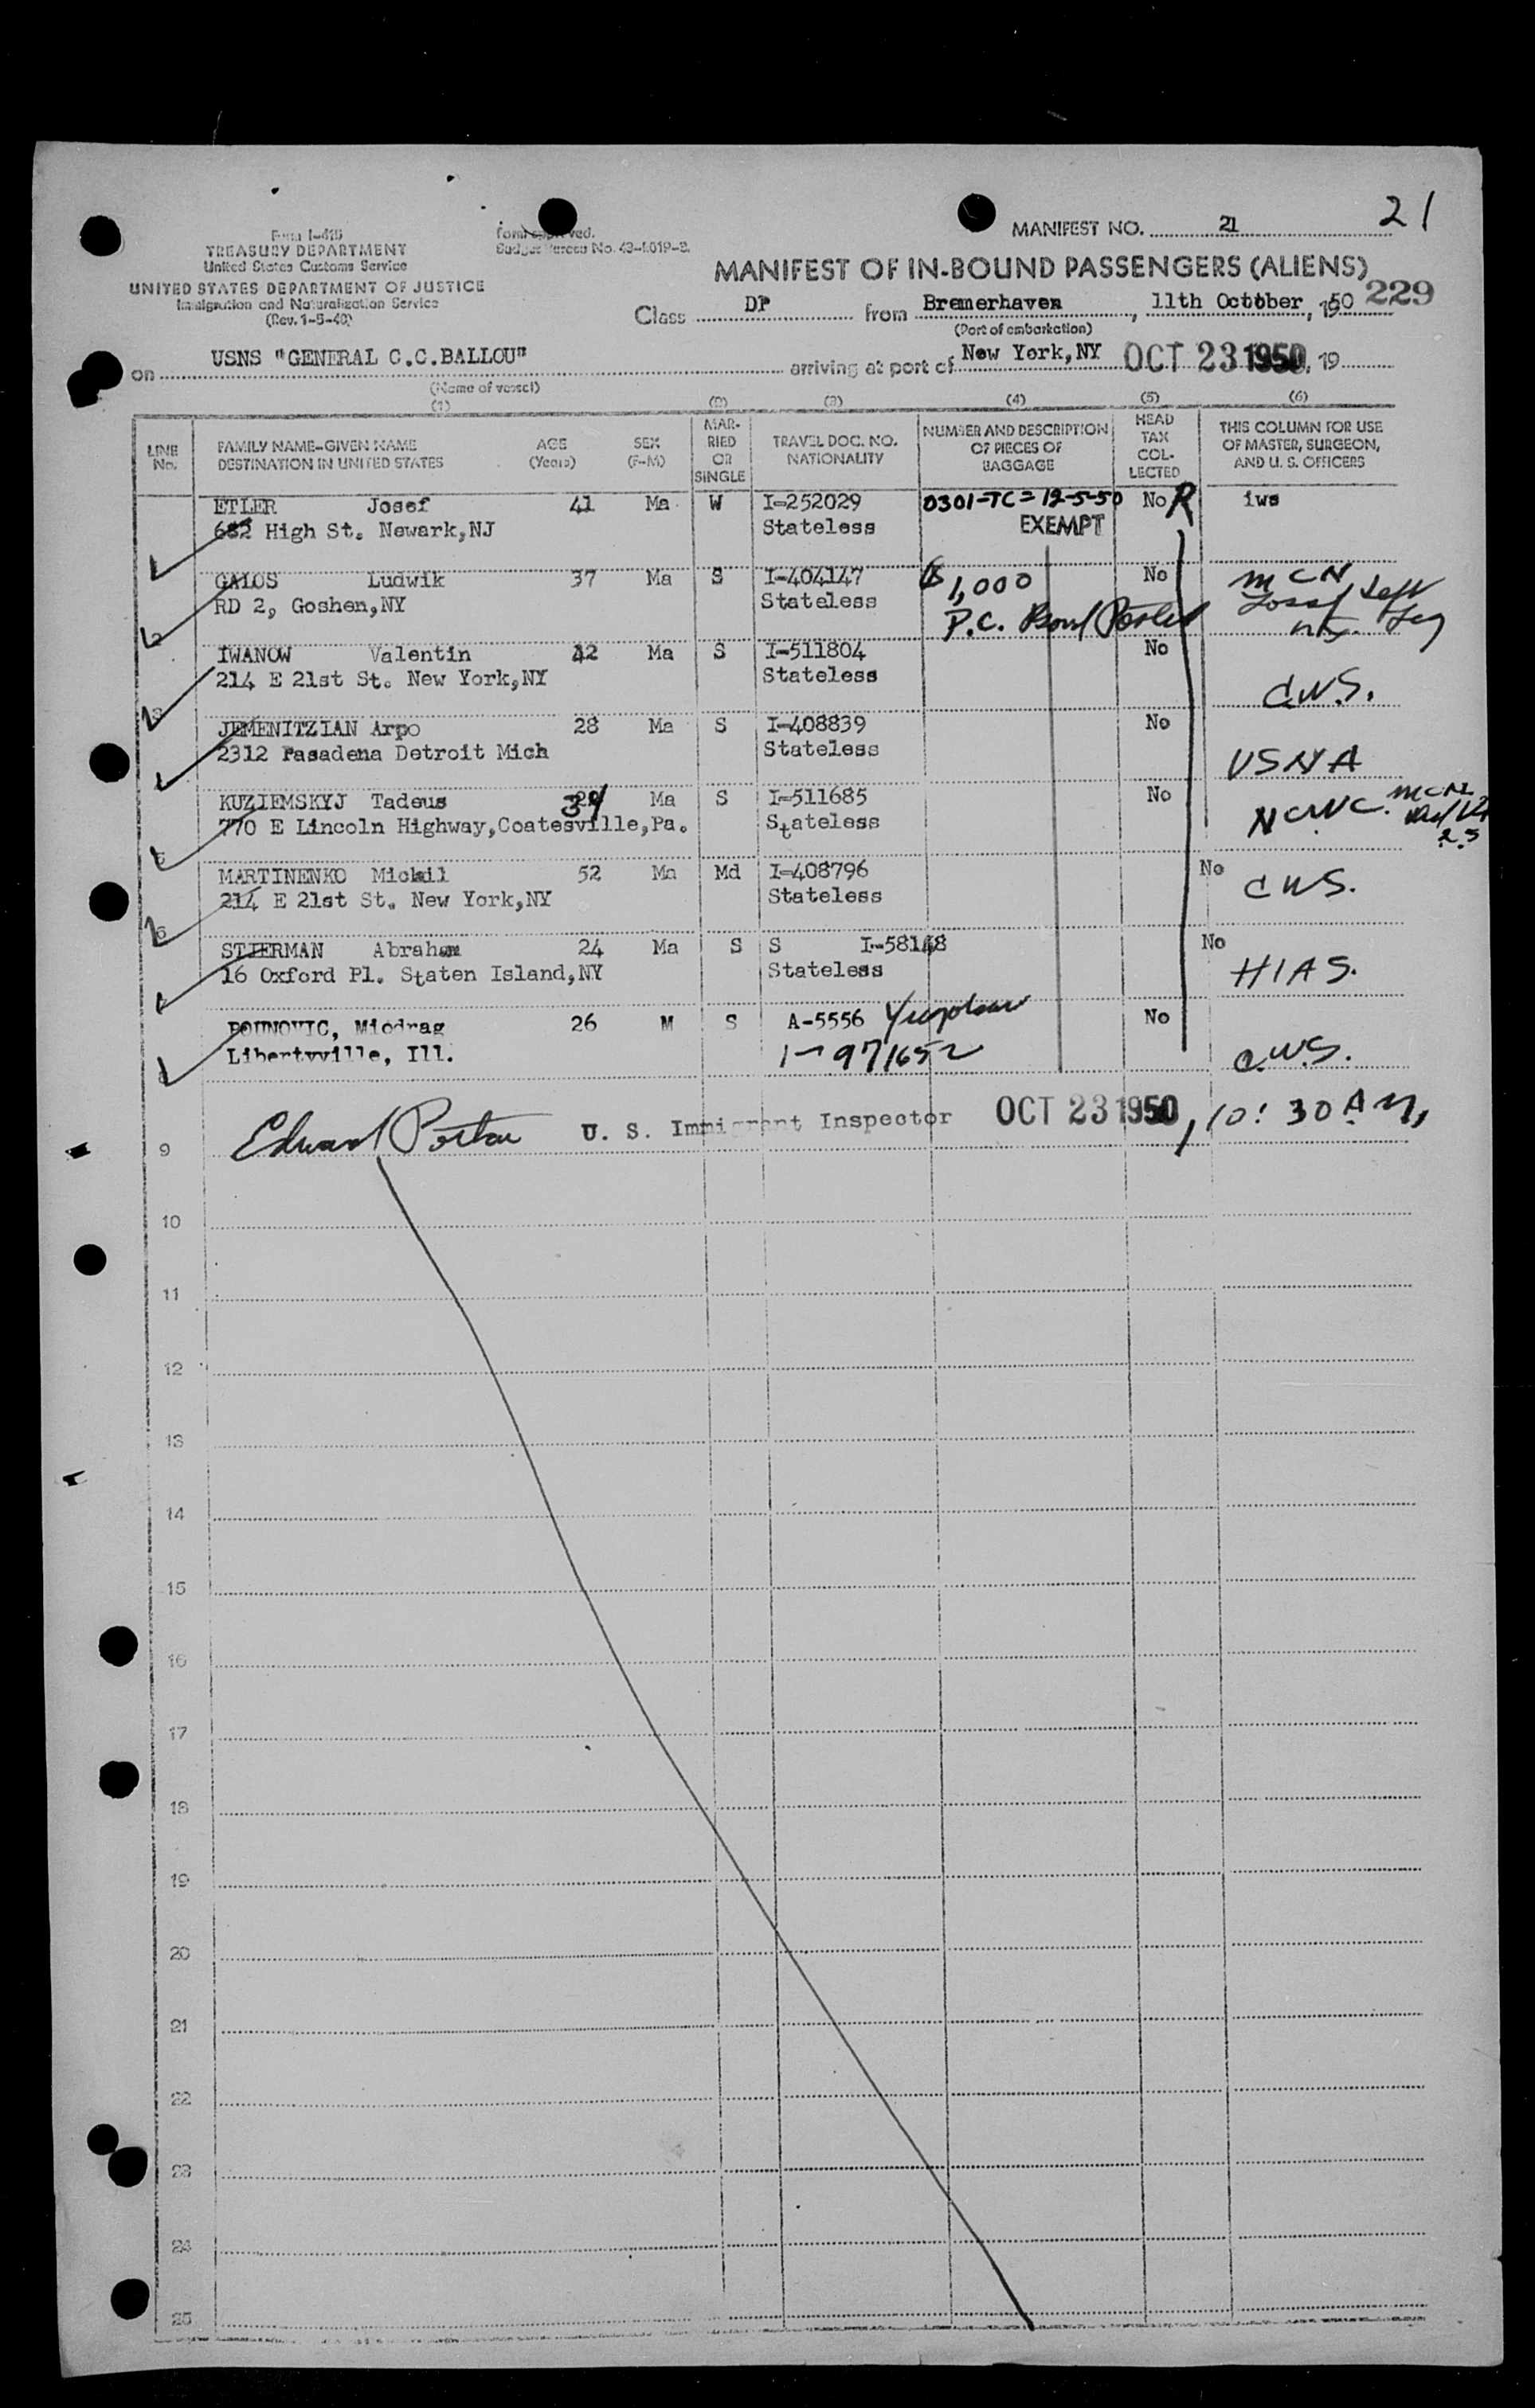 21
MANIFEST NO. 21
Form I-415
TREASURY DEPARTMENT
United States Customs Service
UNITED STATES DEPARTMENT OF JUSTICE
Immigration and Naturalization Service
(Rev. 1-5-40)
Form approved.
Budget Bureau No. 43-R019-2.
MANIFEST OF IN-BOUND PASSENGERS (ALIENS)
229
Class DP from Bremerhaven, 11th October, 1950
(Port of embarkation)
on USNS "GENERAL C.C.BALLOU" arriving at port of New York,NY OCT 23 1950, 19
(Name of vessel)
(1) (2) (3) (4) (5) (6)
LINE No. FAMILY NAME-GIVEN NAME DESTINATION IN UNITED STATES AGE (Years) SEX (F-M) MARRIED OR SINGLE TRAVEL DOC. NO. NATIONALITY NUMBER AND DESCRIPTION OF PIECES OF BAGGAGE HEAD TAX COLLECTED THIS COLUMN FOR USE OF MASTER, SURGEON, AND U. S. OFFICERS
ETLER Josef 41 Ma W I-252029 0301-TC=12-5-50 No R iws
682 High St. Newark,NJ Stateless EXEMPT
GALOS Ludwik 37 Ma S I-404147 $1,000 No MCN
RD 2, Goshen,NY Stateless P.C. Bond Posted Loss of Left Leg
IWANOW Valentin 42 Ma S I-511804 No
214 E 21st St. New York,NY Stateless C.W.S.
JEMENITZIAN Arpo 28 Ma S I-408839 No
2312 Pasadena Detroit Mich Stateless USNA
KUZIEMSKYJ Tadeus 34 Ma S I-511685 No NCWC. MCN
770 E Lincoln Highway,Coatesville,Pa. Stateless
MARTINENKO Mickail 52 Ma Md I-408796 No
214 E 21st St. New York,NY Stateless CWS.
STJERMAN Abraham 24 Ma S S I-58148 No
16 Oxford Pl. Staten Island,NY Stateless HIAS.
POUNOVIC, Miodrag 26 M S A-5556 Yugoslav No
Libertyville, Ill. I-971652 C.W.S.
Edward Porter U. S. Immigrant Inspector OCT 23 1950, 10:30 AM,
9
10
11
12
13
14
15
16
17
18
19
20
21
22
23
24
25